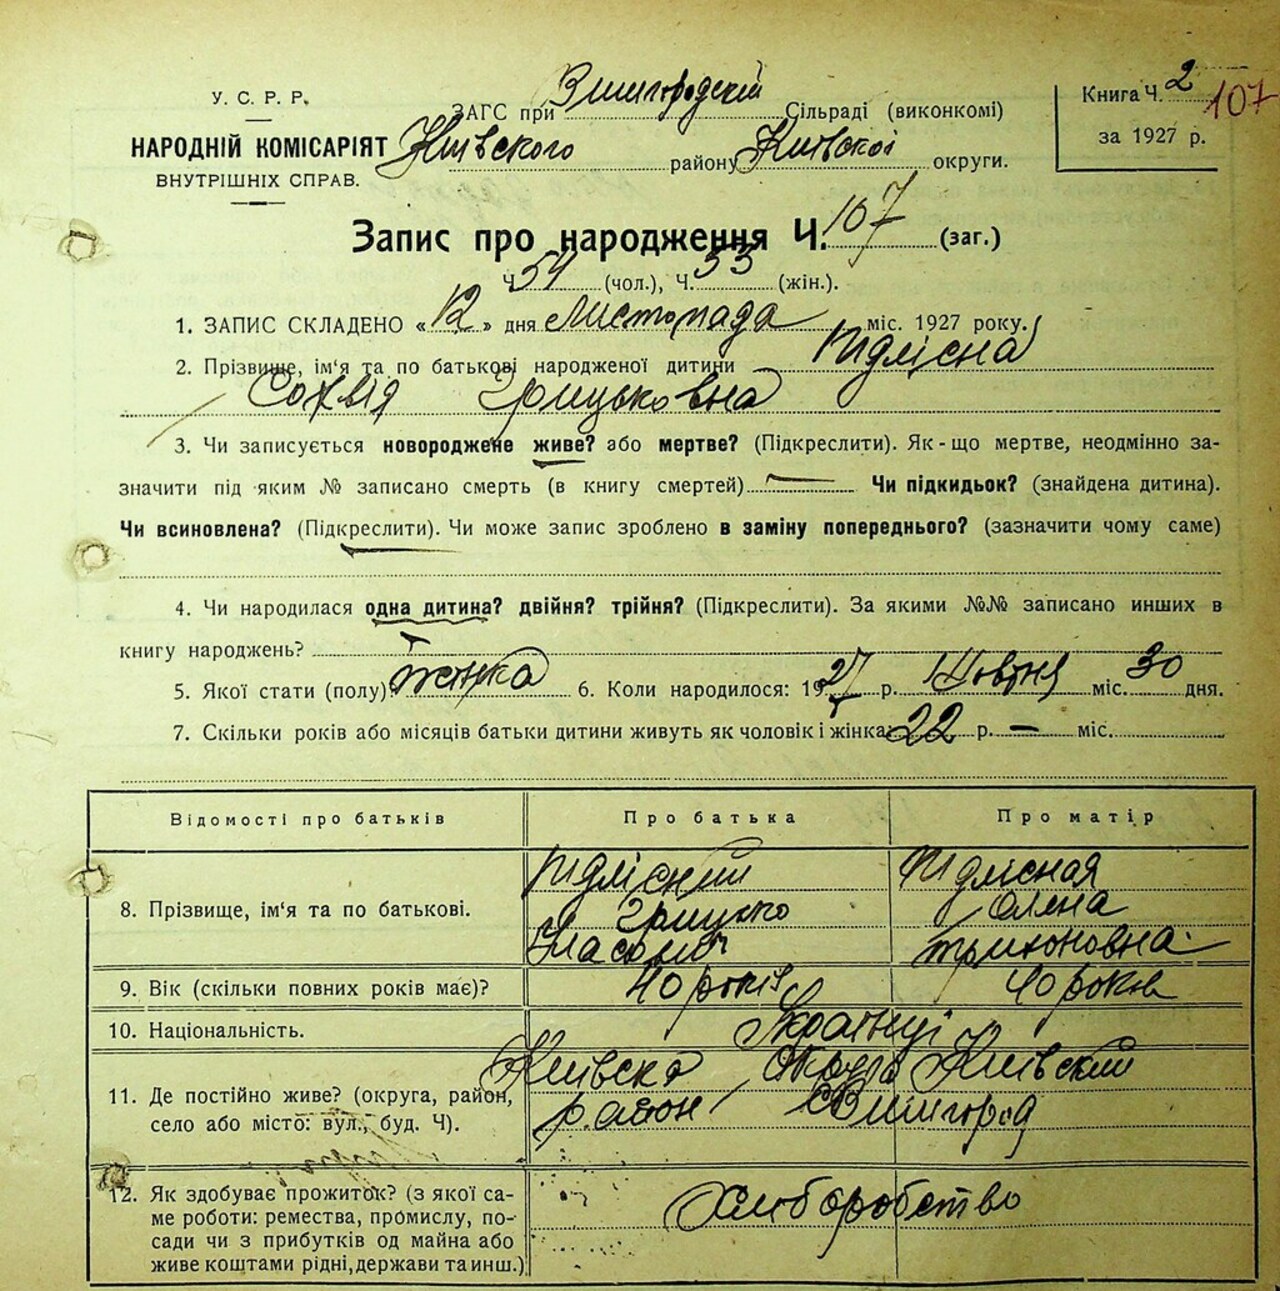 У. С. Р. Р.
НАРОДНІЙ КОМІСАРІЯТ
ВНУТРІШНІХ СПРАВ.
ЗАГС при Вишгородскій Сільраді (виконкомі)
Київского району Київскої округи.
Книга Ч. 2 107
за 1927 р.
Запис про народження Ч. 107 (заг.)
Ч. 54 (чол.), Ч. 53 (жін.).
1. ЗАПИС СКЛАДЕНО «12» дня Листопада міс. 1927 року.
2. Прізвище, ім'я та по батькові народженої дитини Підлісна
Сохвія Грицьковна
3. Чи записується новороджене живе? або мертве? (Підкреслити). Як-що мертве, неодмінно за-
значити під яким № записано смерть (в книгу смертей) — Чи підкидьок? (знайдена дитина).
Чи всиновлена? (Підкреслити). Чи може запис зроблено в заміну попереднього? (зазначити чому саме)
4. Чи народилася одна дитина? двійня? трійня? (Підкреслити). За якими №№ записано инших в
книгу народжень?
5. Якої стати (полу) жінка 6. Коли народилося: 1927 р. Жовтня міс. 30 дня.
7. Скільки років або місяців батьки дитини живуть як чоловік і жінка: 22 р. — міс.
Відомості про батьків Про батька Про матір
8. Прізвище, ім'я та по батькові.
Підліский Підлісная
Грицько Олена
Власович Трихоновна
9. Вік (скільки повних років має)? 40 років 40 роков
10. Національність. Українці
11. Де постійно живе? (округа, район,
село або місто: вул., буд. Ч).
Київска Округа Київский
район с. Вишгород
12. Як здобуває прожиток? (з якої са-
ме роботи: ремества, промислу, по-
сади чи з прибутків од майна або
живе коштами рідні, держави та инш.)
Хлиборобство